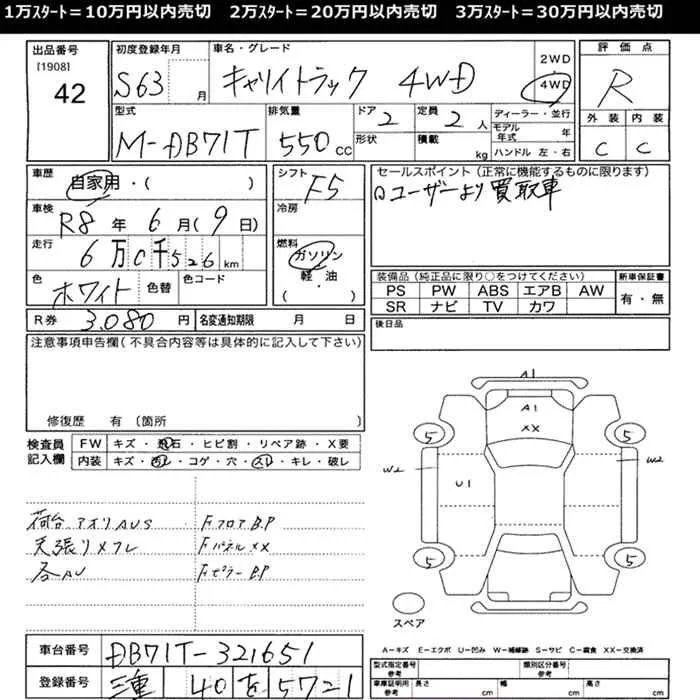 1万ｽﾀｰﾄ＝10万円以内売切　2万ｽﾀｰﾄ＝20万円以内売切　3万ｽﾀｰﾄ＝30万円以内売切
出品番号
[1908]
42
初度登録年月
S63 月
車名・グレード
キャリイトラック 4WD
2WD
4WD
評価点
R
外装 内装
C C
型式
M-DB71T
排気量
550 cc
ドア
2
形状
定員
2 人
積載
kg
ディーラー・並行
モデル年式 年
ハンドル 左・右
車歴
自家用・( )
シフト
F5
セールスポイント (正常に機能するものに限ります)
ロユーザーより買取車
車検
R8 年 6 月 (9 日)
冷房
走行
6万0千526 km
燃料
ガソリン
軽・油
( ・ )
色
ホワイト
色替
色コード
装備品 (純正品に限り○をつけてください)
PS PW ABS エアB AW
SR ナビ TV カワ
新車保証書
有・無
R券 3.080 円
名変通知期限 月 日
後日品
注意事項申告欄 (不具合内容等は具体的に記入して下さい)
修復歴 有 (箇所 )
検査員記入欄
FW キズ・飛石・ヒビ割・リペア跡・X要
内装 キズ・汚レ・コゲ・穴・スレ・キレ・破レ
A1
A1
XX
5 5
W2 U1 W2
5 5
スペア
荷台アオリAUS FフロアB.P
天張リメクレ FパネルXX
各AU FピラーB.P
A−キズ E−エクボ U−凹み W−補修跡 S−サビ C−腐食 XX−交換済
車台番号 DB71T-321651
登録番号 三重 40 を 5721
型式指定番号 類別区分番号
参考
車庫証明用参考 長さ cm 幅 cm 高さ cm